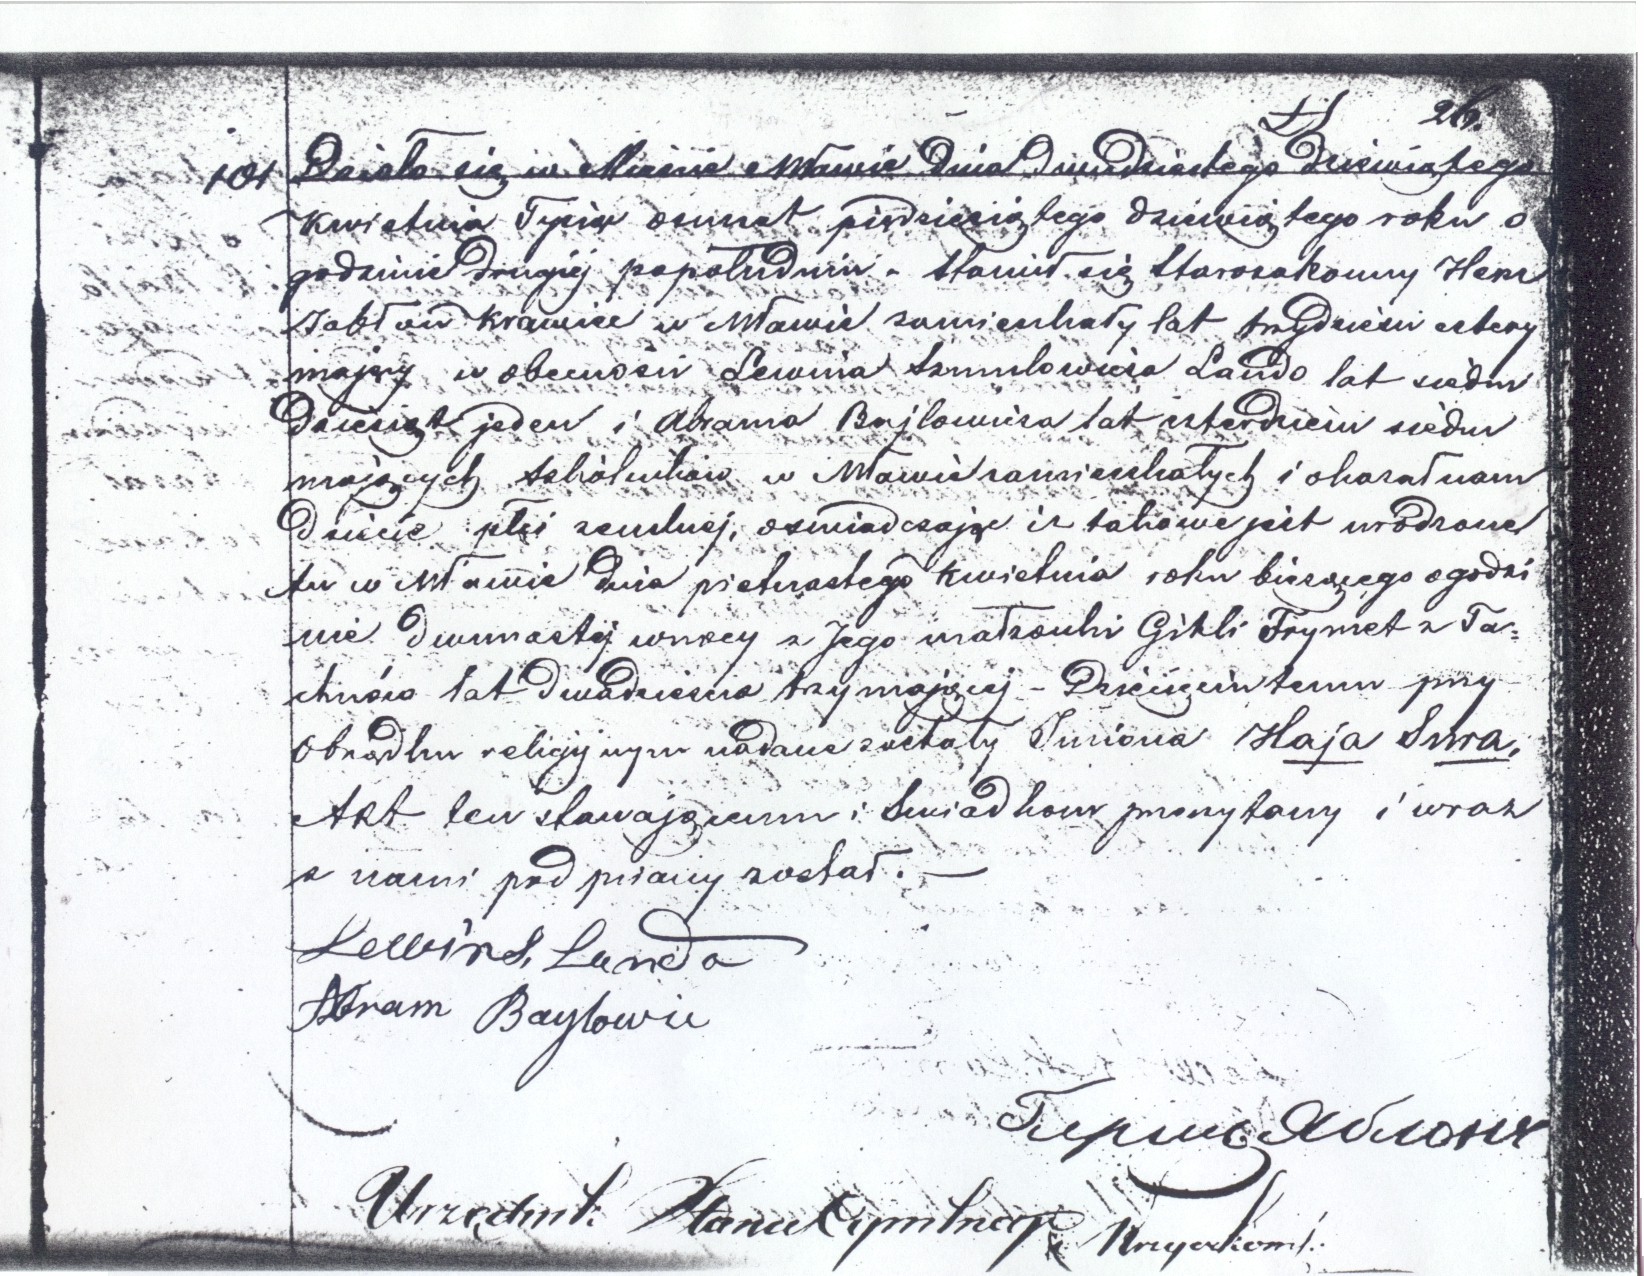 26.
101 Działo się w Mieście Mławie Dnia Dwudziestego Dziewiątego
Kwietnia Tysiąc osmset pięćdziesiątego dziewiątego roku o
godzinie Drugiej popołudniu - Stawił się Starozakonny
Jabłon Krawiec w Mławie zamieszkały lat trzydzieści cztery
mający w obecności Lewina Szmulowicza Lando lat siedm
Dziesiąt jeden i Abrama Bajlowicza lat czterdzieści siedm
mających Szkolników w Mławie zamieszkałych i okazał nam
Dziecie płci żeńskiej, oświadczając iż takowe jest urodzone
tu w Mławie Dnia pietnastego Kwietnia roku bieżącego o godzi
nie Dwunastej w nocy z Jego małżonki Gitli Frymet z Ta=
chnów lat Dwadzieścia trzy mającej - Dziecięciu temu przy
Obrządku religijnym nadane zostały Imiona Haja Sura.
Akt ten stawającemu i Swiadkom przeczytany i wraz
z nami podpisany został. —
Lewin S. Landa
Abram Baylowic
Яблонъ
Urzędnik Stanu Cywilnego